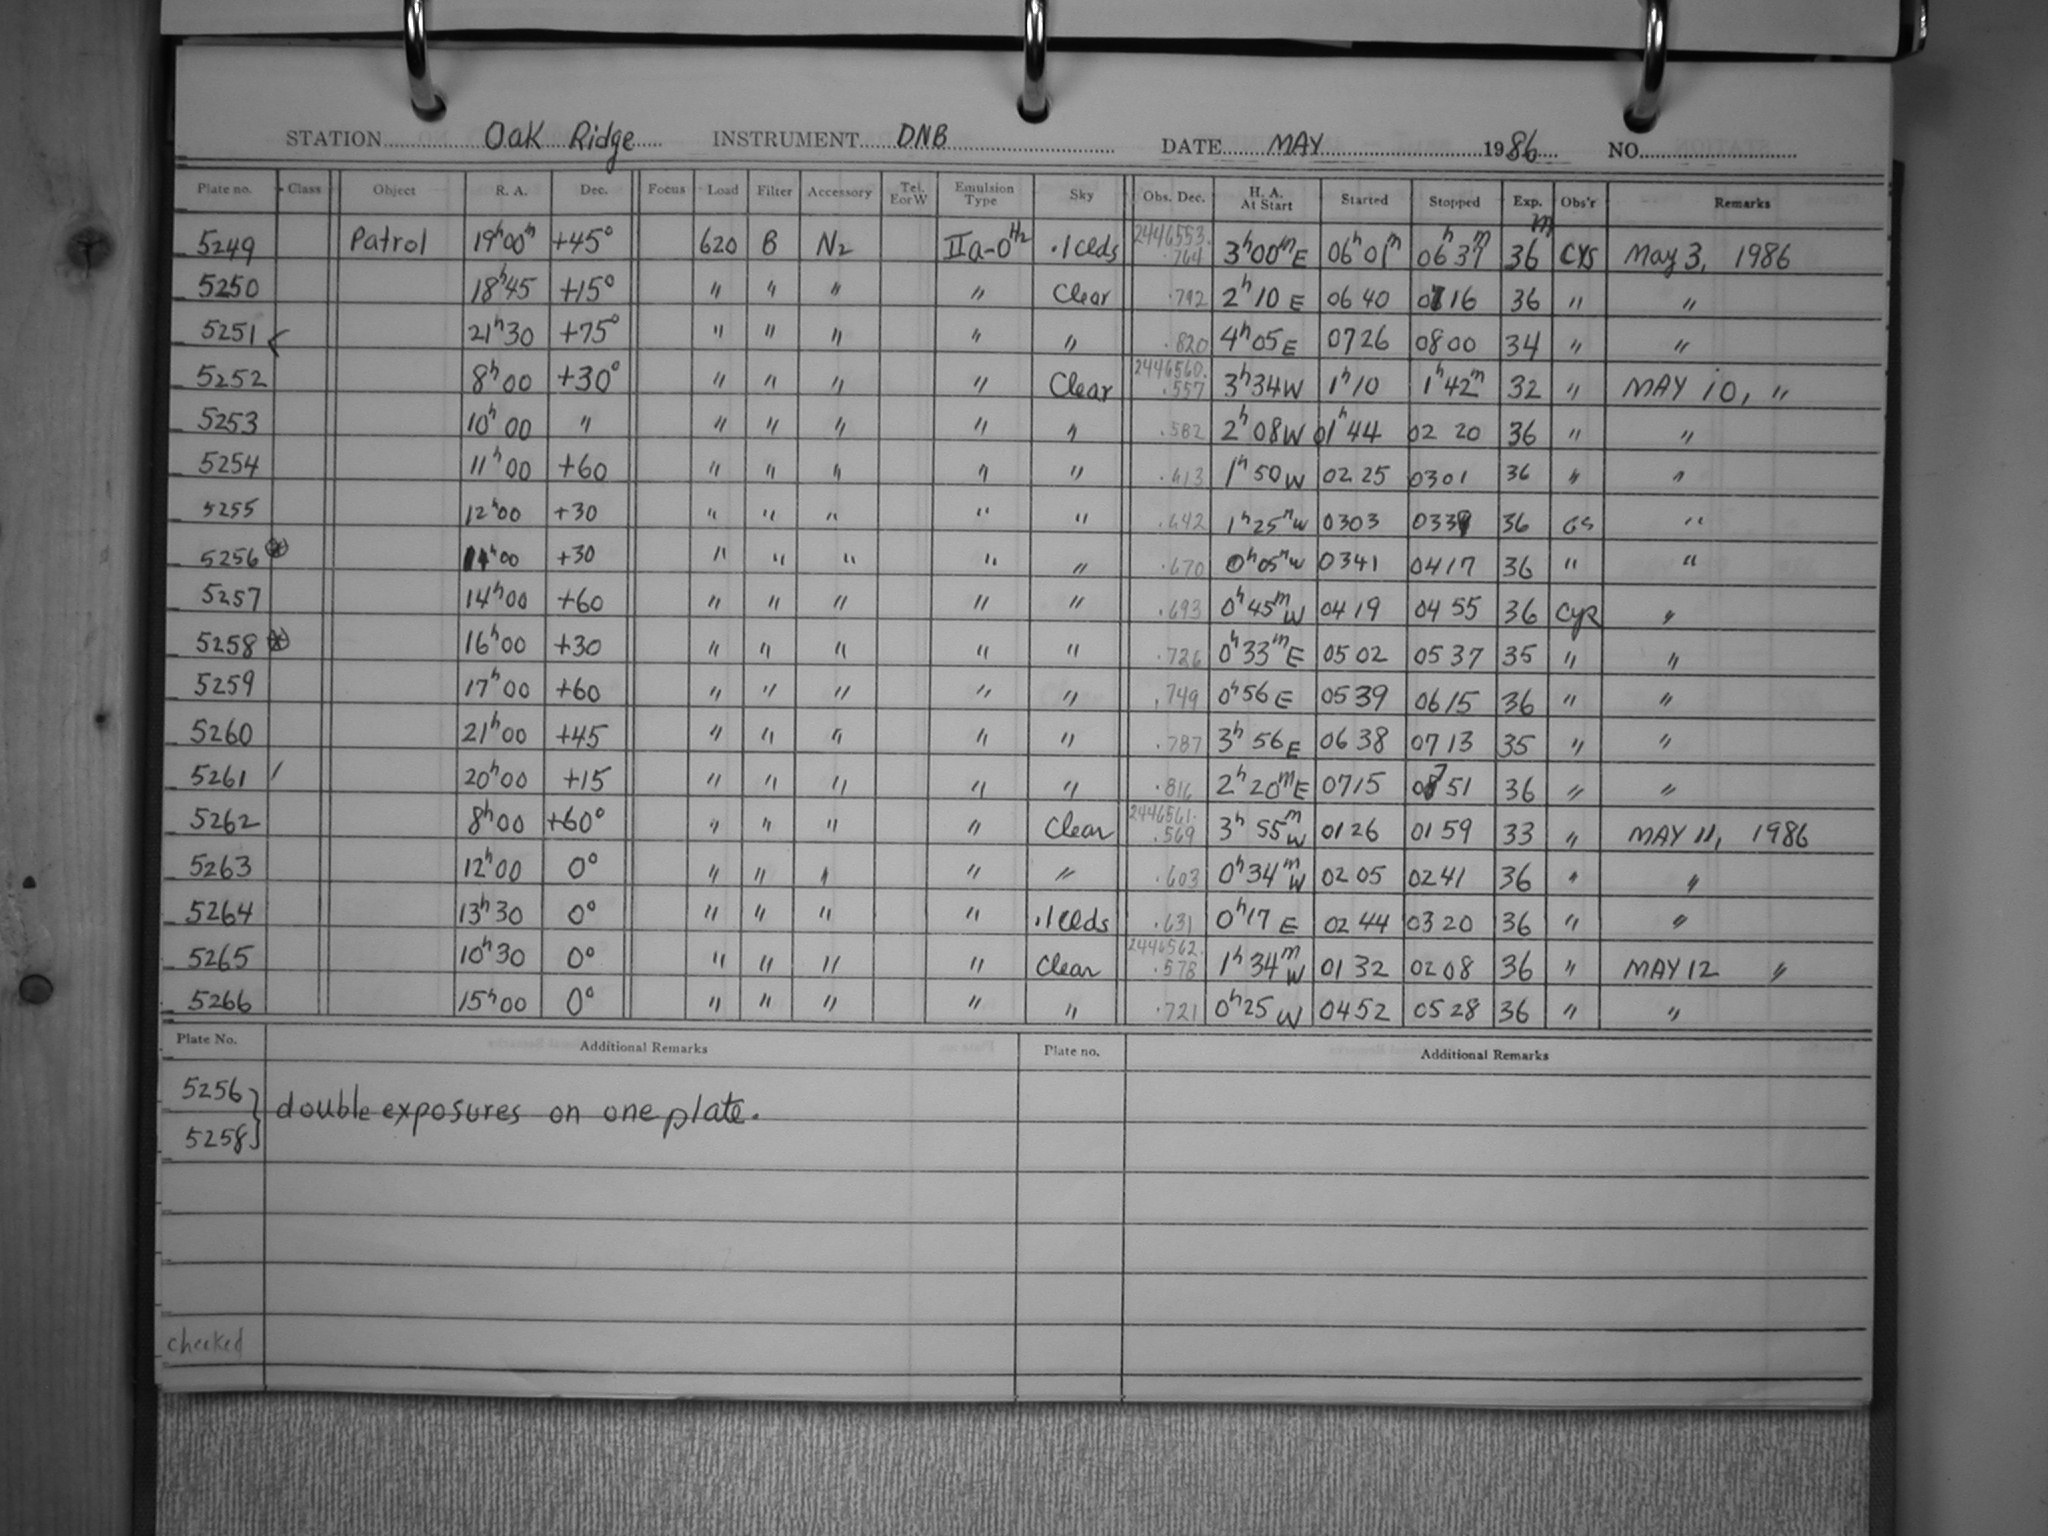 STATION Oak Ridge INSTRUMENT DNB DATE MAY 1986 NO.
Plate no. Class Object R. A. Dec. Focus Load Filter Accessory Tel. E or W Emulsion Type Sky Obs. Dec. H. A. At Start Started Stopped Exp. Obs'r Remarks
5249 Patrol 19h00m +45° 620 B N2 IIa-O H2 .1 Clds 2446553. .764 3h00m E 06h01m 06h37m 36m CYS May 3, 1986
5250 18h45 +15° " " " " Clear .792 2h10 E 0640 0716 36 " "
5251 21h30 +75° " " " " " .820 4h05 E 0726 0800 34 " "
5252 8h00 +30° " " " " Clear 2446560. .557 3h34 W 1h10 1h42m 32 " MAY 10, "
5253 10h00 " " " " " " .582 2h08 W 01h44 02 20 36 " "
5254 11h00 +60 " " " " " .613 1h50 W 02 25 0301 36 " "
5255 12h00 +30 " " " " " .642 1h25m W 0303 0339 36 GS "
5256 * 14h00 +30 " " " " " .670 0h05m W 0341 0417 36 " "
5257 14h00 +60 " " " " " .693 0h45m W 04 19 04 55 36 CYR "
5258 * 16h00 +30 " " " " " .726 0h33m E 05 02 05 37 35 " "
5259 17h00 +60 " " " " " .749 0h56 E 05 39 06 15 36 " "
5260 21h00 +45 " " " " " .787 3h56 E 06 38 07 13 35 " "
5261 / 20h00 +15 " " " " " .816 2h20m E 0715 0751 36 " "
5262 8h00 +60° " " " " Clear 2446561. .569 3h55m W 01 26 01 59 33 " MAY 11, 1986
5263 12h00 0° " " " " " .603 0h34m W 02 05 02 41 36 " "
5264 13h30 0° " " " " .1 Clds .631 0h17 E 02 44 03 20 36 " "
5265 10h30 0° " " " " Clear 2446562. .578 1h34m W 01 32 02 08 36 " MAY 12 "
5266 15h00 0° " " " " " .721 0h25 W 04 52 05 28 36 " "
Plate No. Additional Remarks Plate no. Additional Remarks
5256
5258 } double exposures on one plate.
checked